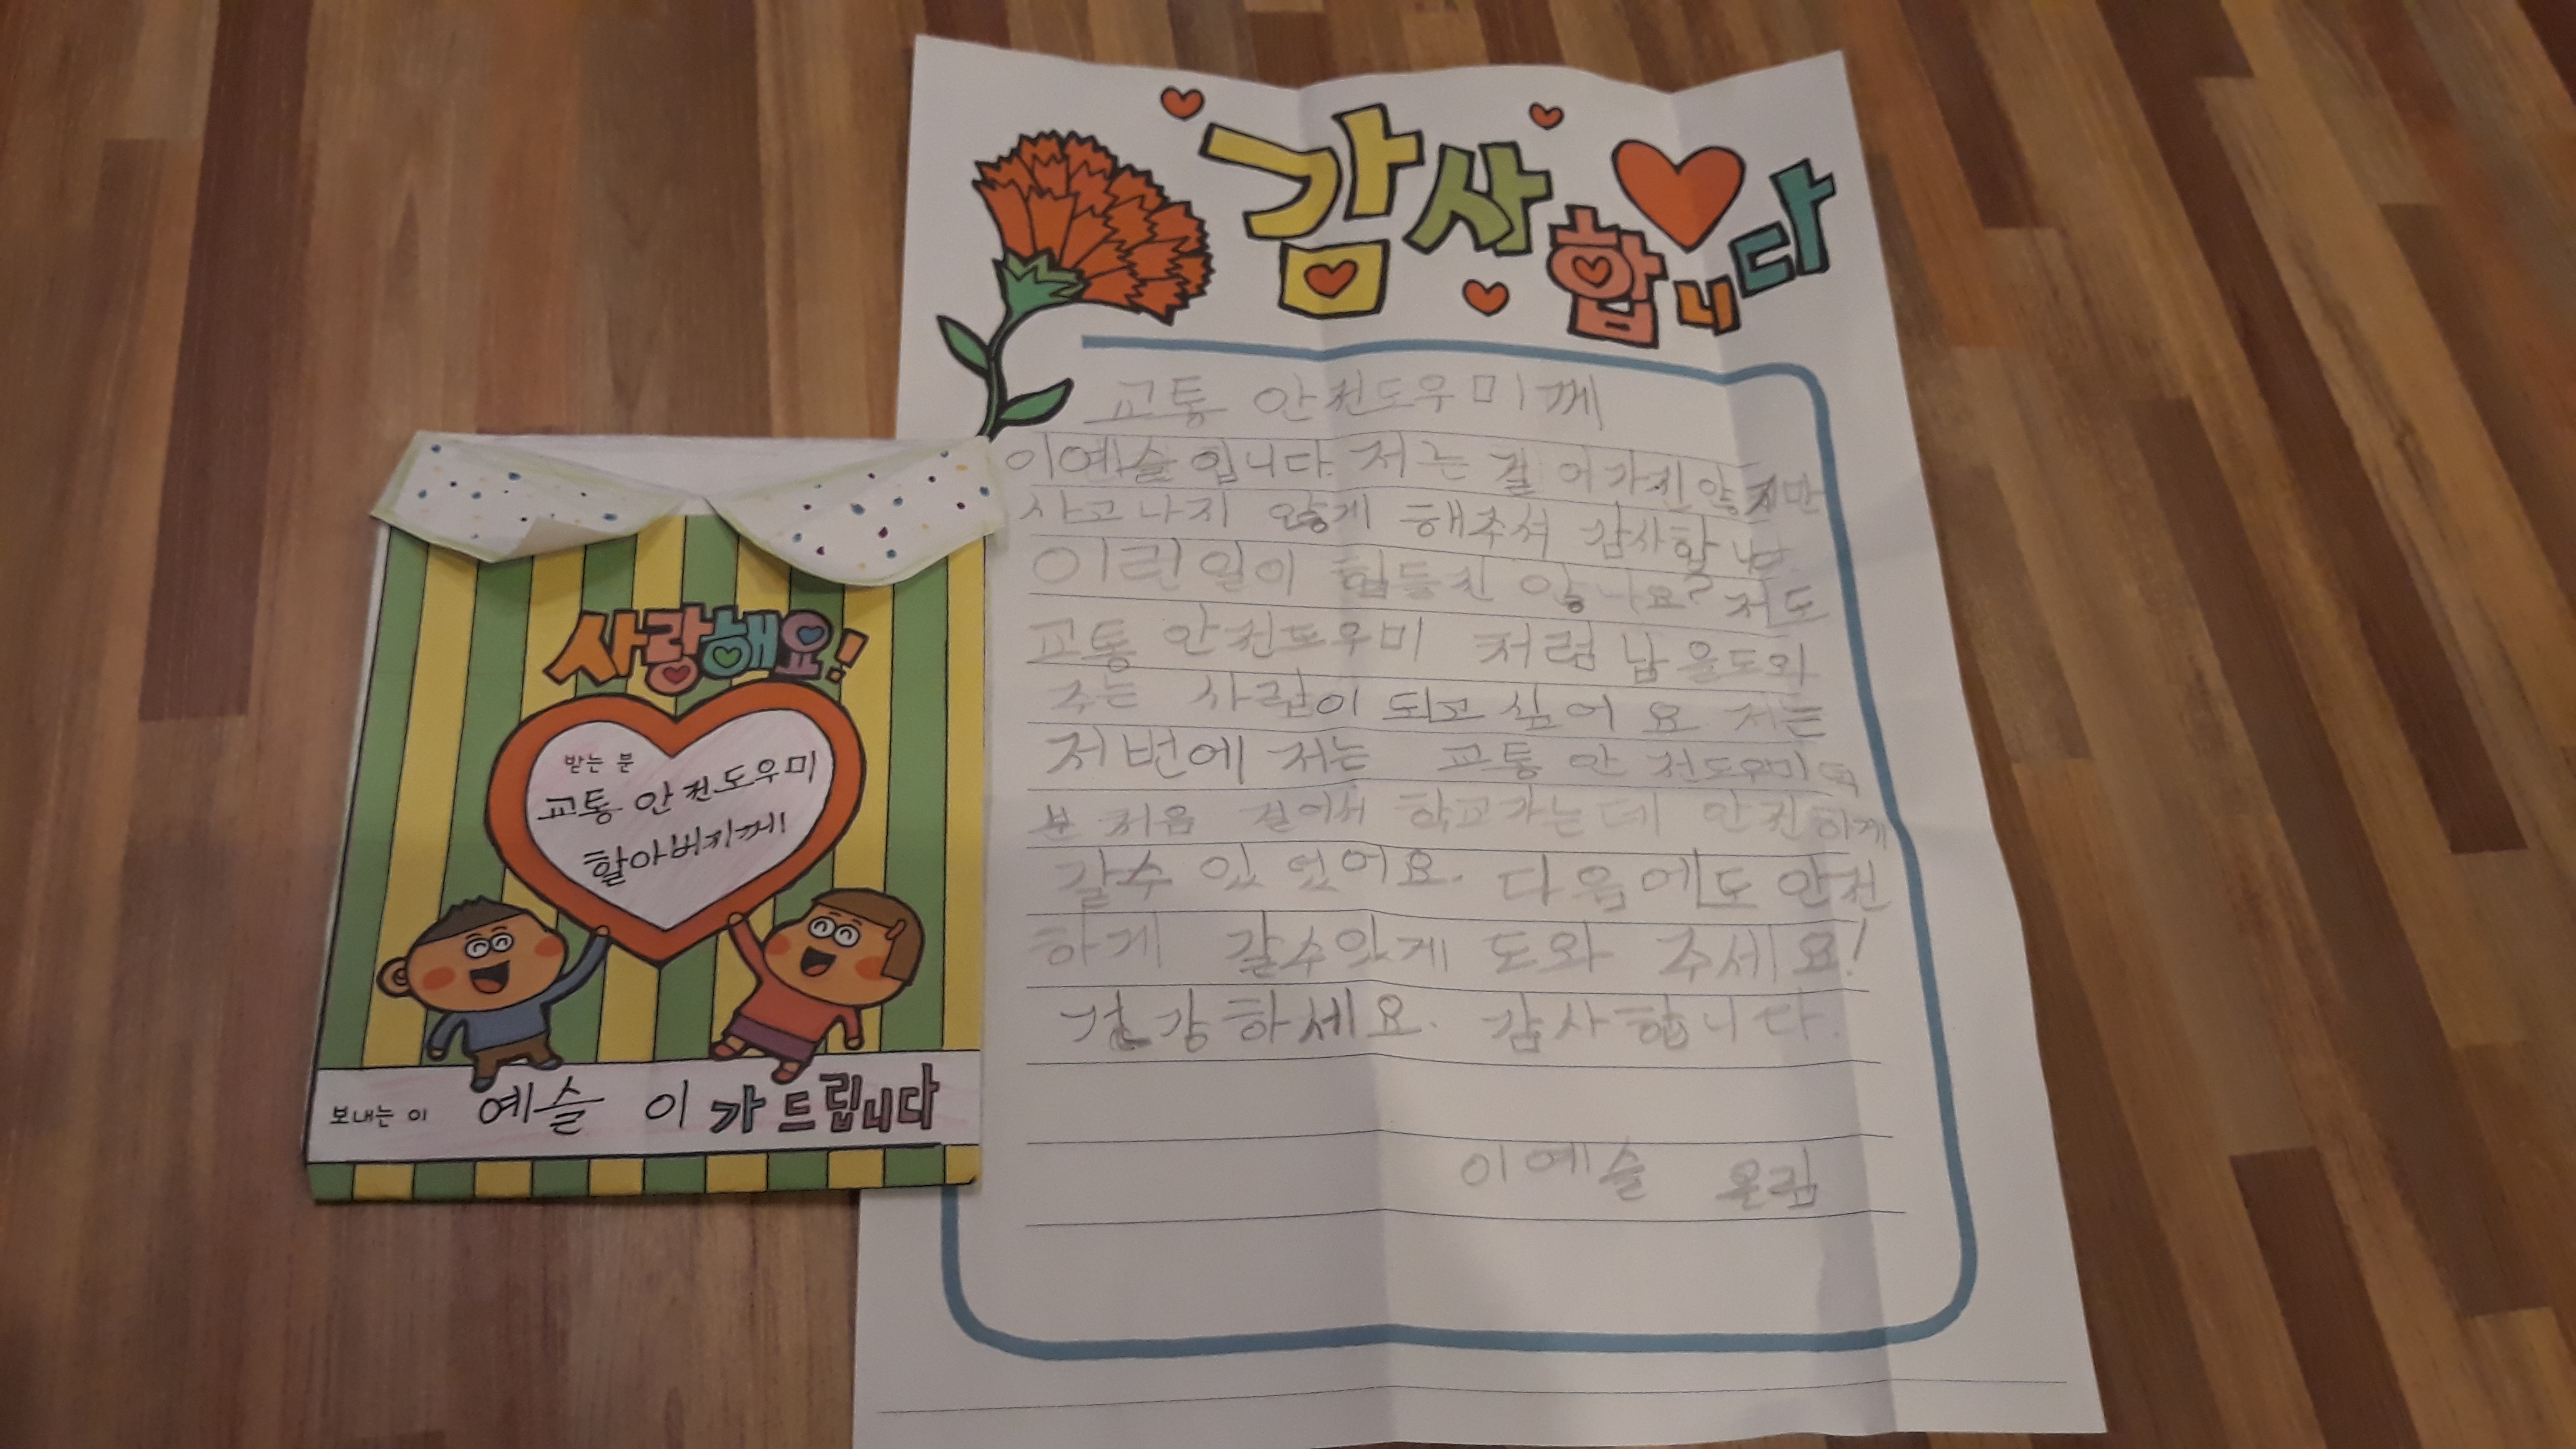 사랑해요!
받는 분
교통 안전도우미
할아버지께!
보내는 이 예슬 이가 드립니다
감사합니다
교통 안전도우미께
이예슬입니다. 저는 걸어가진 않지만
사고나지 않게 해주셔 감사합니다.
이런일이 힘들진 않나요? 저도
교통 안전도우미 처럼 남을도와
주는 사람이 되고싶어요 저는
저번에 저는 교통 안전도우미 덕
분 처음 걸어서 학교가는데 안전하게
갈수 있었어요. 다음에도 안전
하게 갈수있게 도와 주세요!
건강하세요. 감사합니다.
이예슬 올림